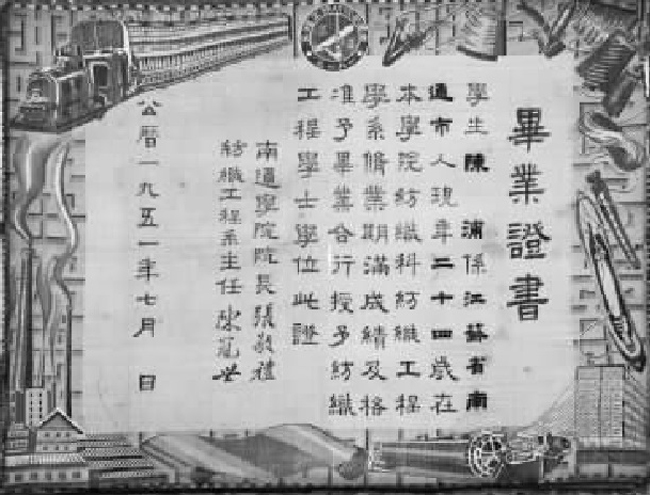 畢業證書
學生陳 浦係江蘇省南
通市人現年二十四歲在
本學院紡織科紡織工程
學系脩業期滿成績及格
准予畢業合行授予紡織
工程學士學位此證
南通學院院長張敬禮
紡織工程系主任陳冠世
公曆一九五一年七月 日